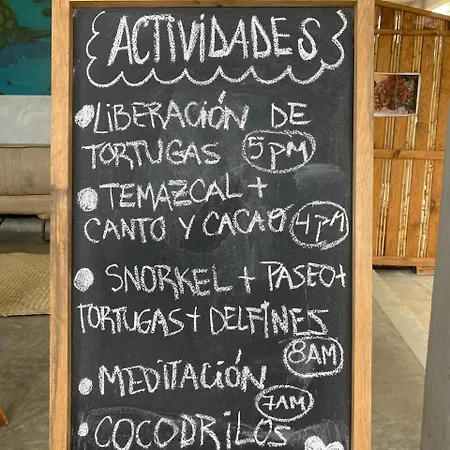 ACTIVIDADES
• LIBERACIÓN DE
TORTUGAS 5PM
• TEMAZCAL +
CANTO Y CACAO 4PM
• SNORKEL + PASEO +
TORTUGAS + DELFINES
8AM
• MEDITACIÓN
7AM
• COCODRILOS